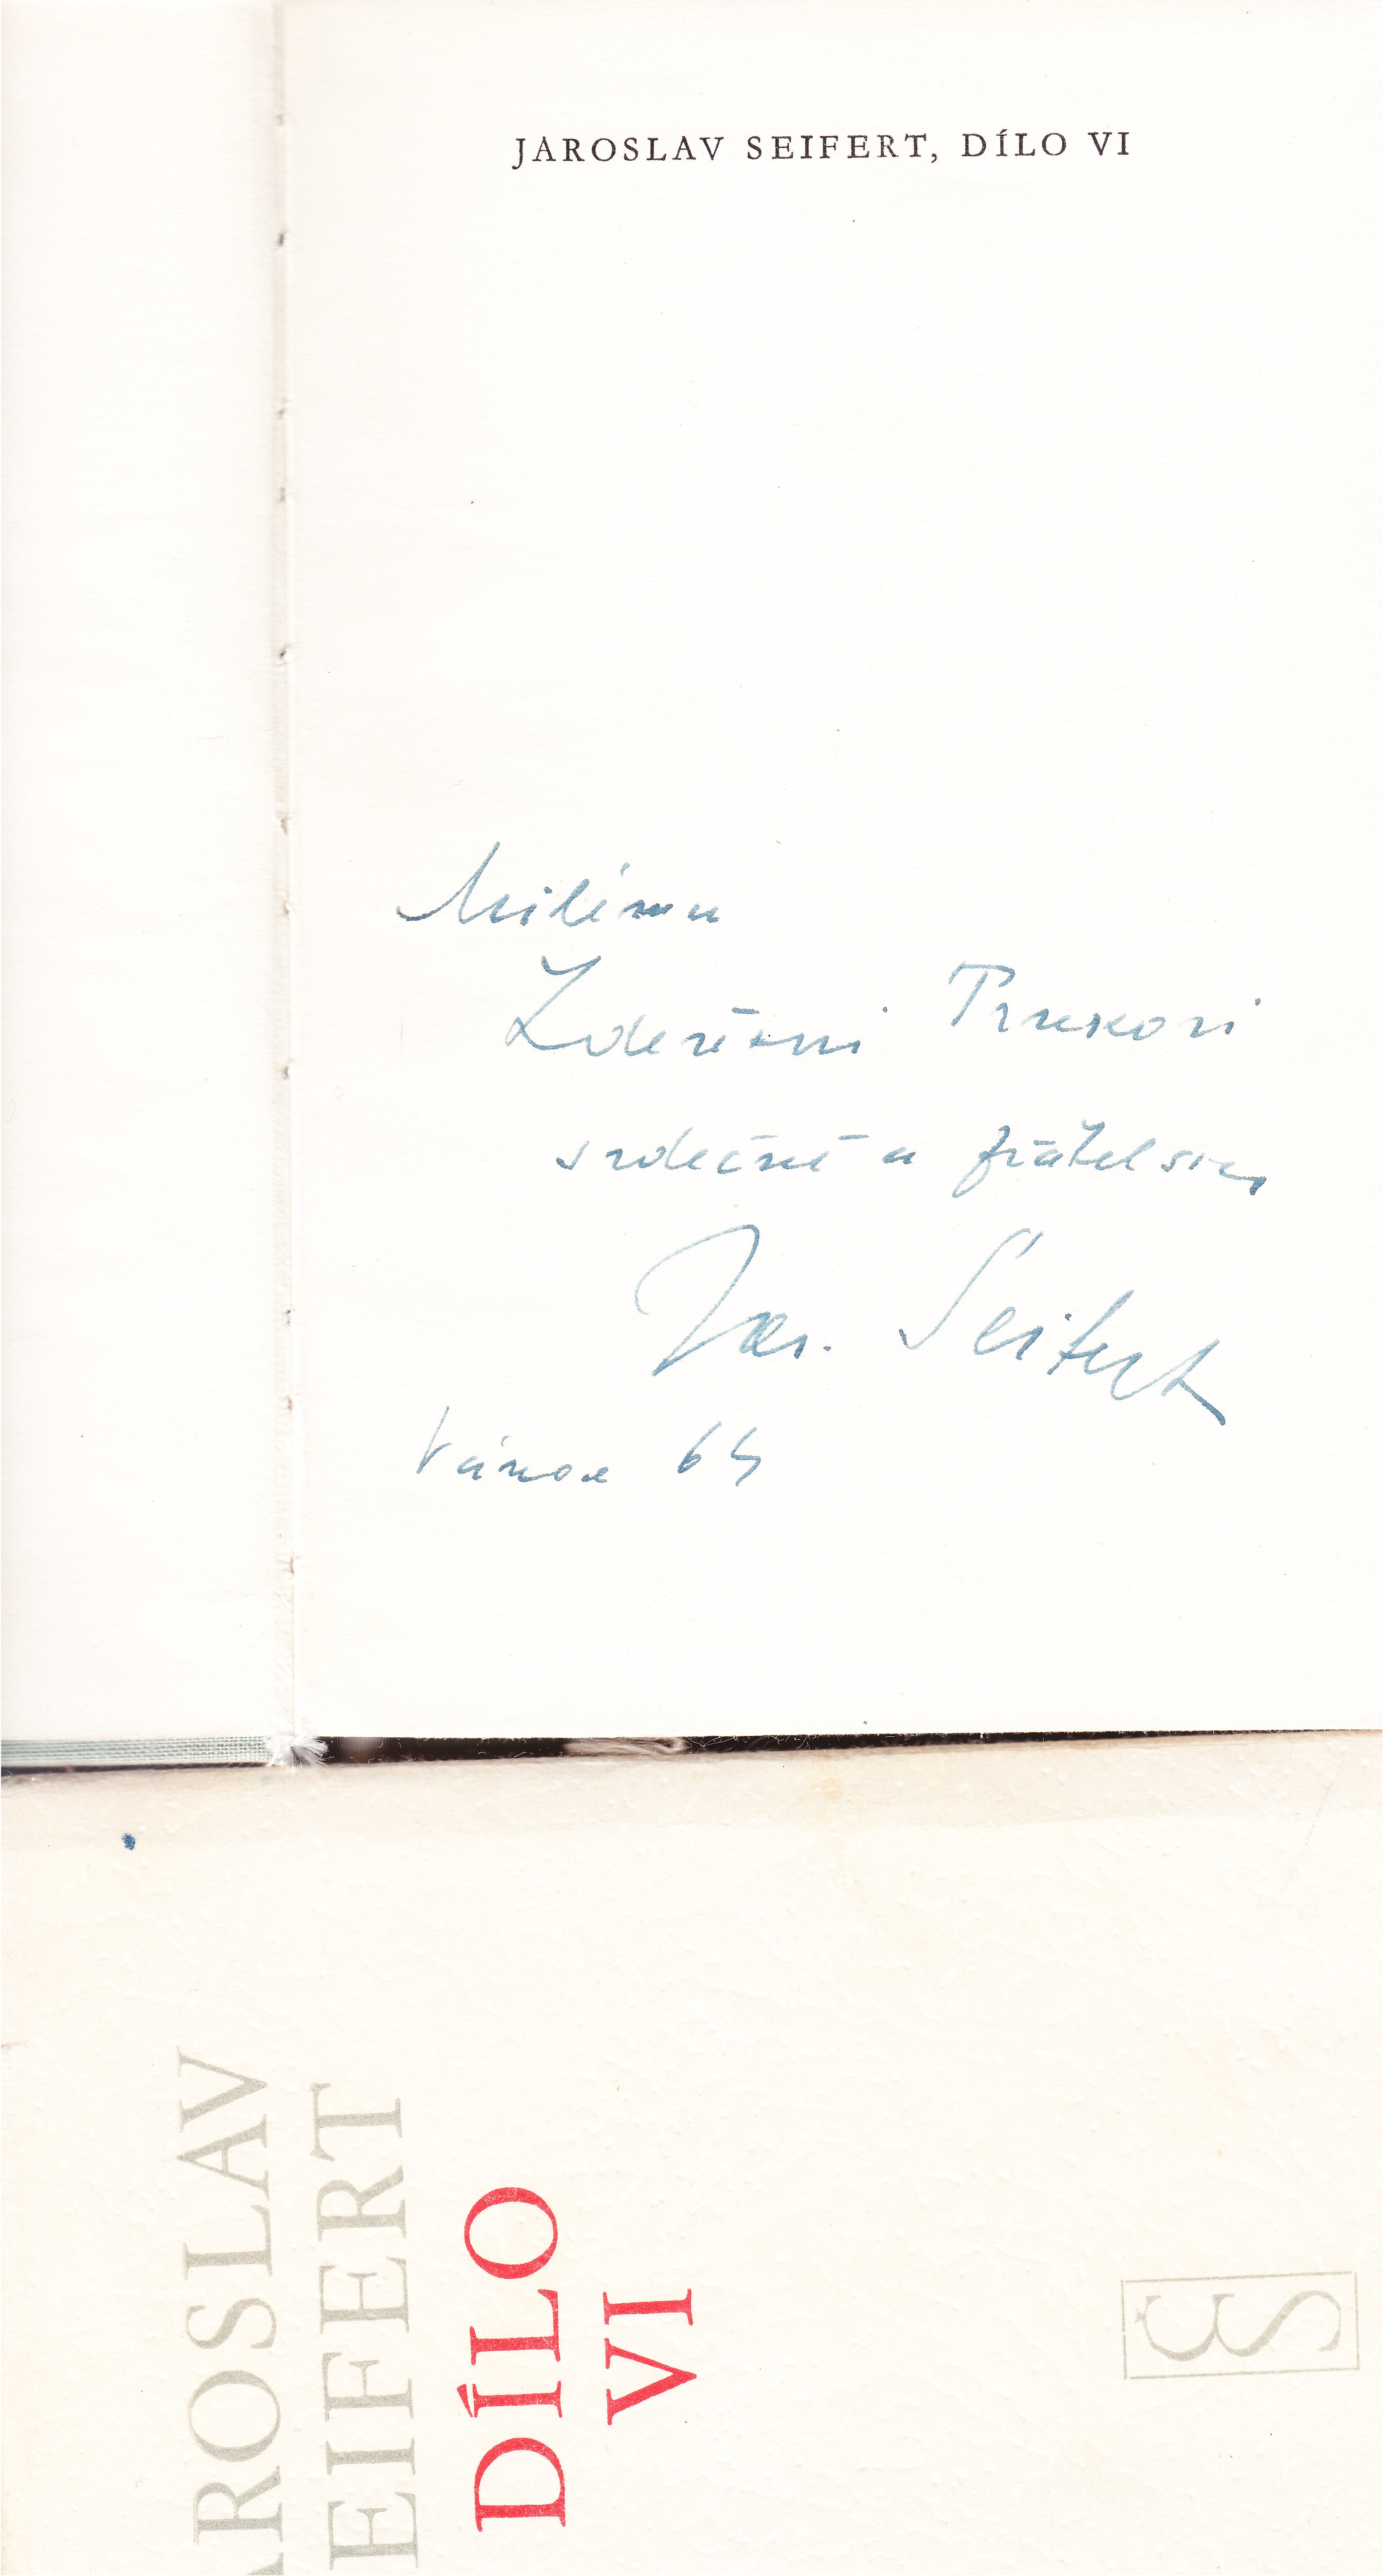 JAROSLAV SEIFERT, DÍLO VI
Milému
Zdeňkovi
srdečně a přátelsky
Jar. Seifert
Vánoce 64
AROSLAV
EIFERT
DÍLO
VI
ČS